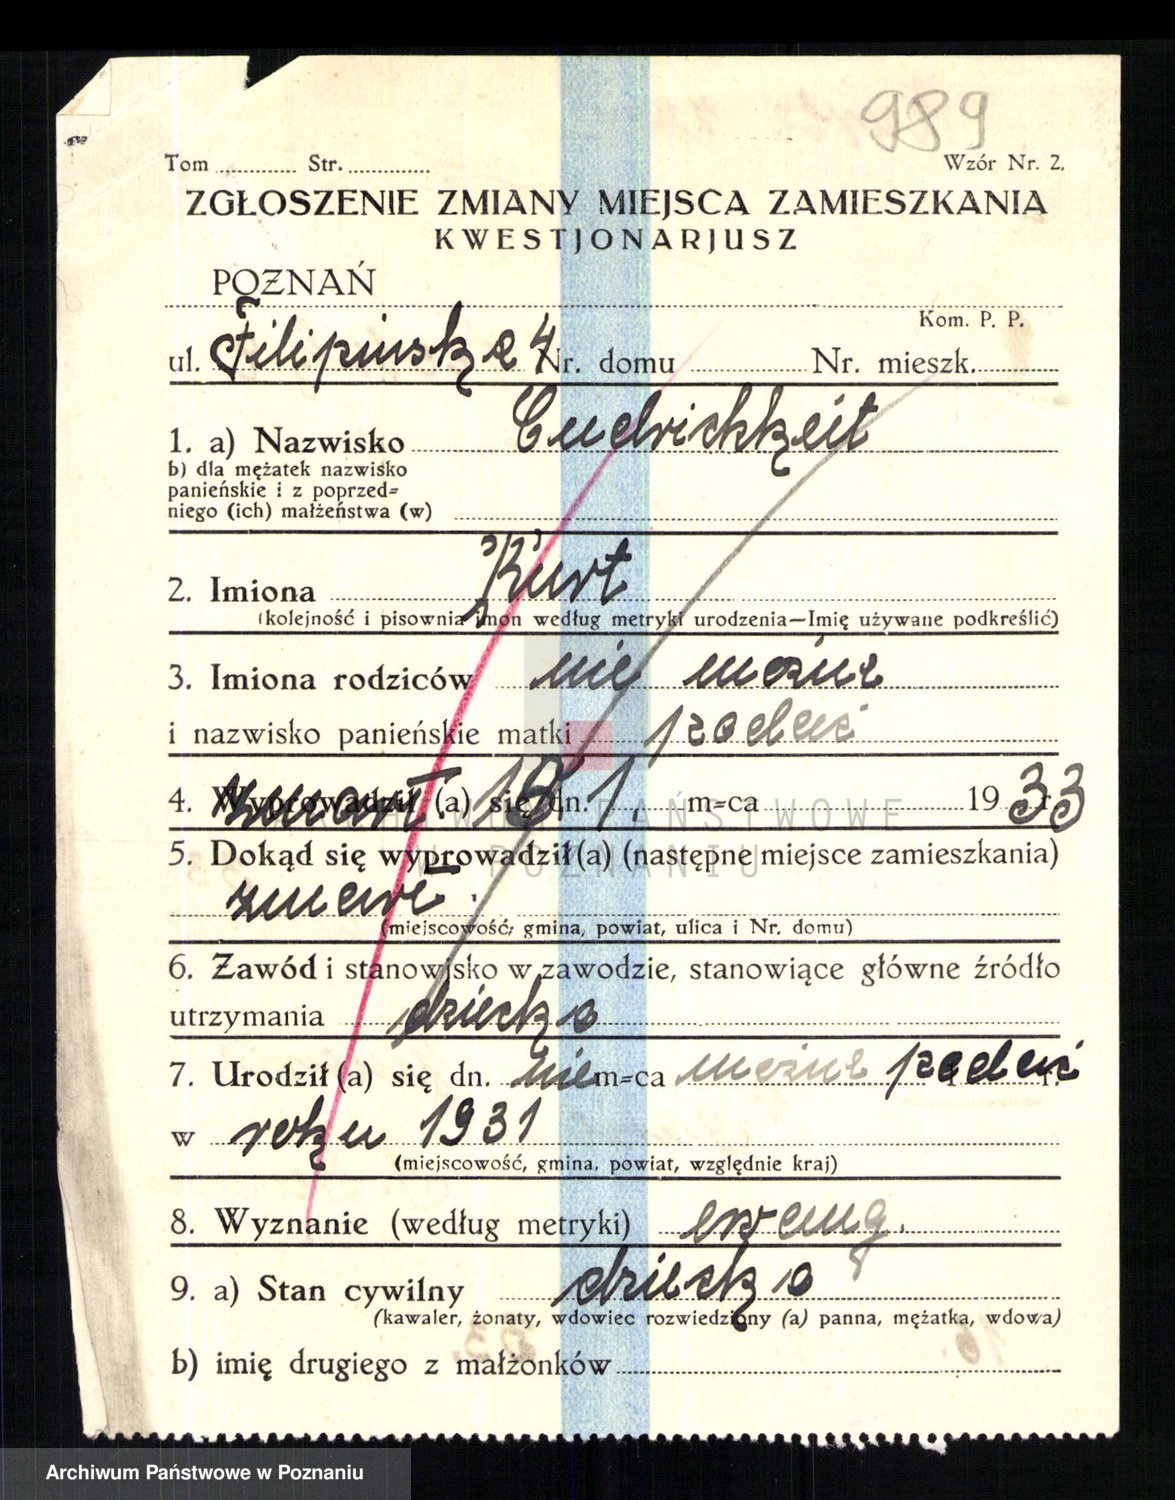 989
Tom ............ Str. ............ Wzór Nr. 2.
ZGŁOSZENIE ZMIANY MIEJSCA ZAMIESZKANIA
KWESTJONARJUSZ
POZNAŃ
Kom. P. P.
ul. Filipińska 4 Nr. domu ............ Nr. mieszk. ............
1. a) Nazwisko Cudrichkeit
b) dla mężatek nazwisko
panieńskie i z poprzed=
niego (ich) małżeństwa (w)
2. Imiona Kurt
(kolejność i pisownia imion według metryki urodzenia—Imię używane podkreślić)
3. Imiona rodziców nie można
i nazwisko panieńskie matki podać
4. Wyprowadził (a) się dn. zmarł 18 1. m=ca 1933 r.
5. Dokąd się wyprowadził (a) (następne miejsce zamieszkania)
zmarł.
(miejscowość, gmina, powiat, ulica i Nr. domu)
6. Zawód i stanowisko w zawodzie, stanowiące główne źródło
utrzymania dziecko
7. Urodził (a) się dn. nie m=ca można podać r.
w roku 1931
(miejscowość, gmina, powiat, względnie kraj)
8. Wyznanie (według metryki) ewang.
9. a) Stan cywilny dziecko
(kawaler, żonaty, wdowiec rozwiedziony (a) panna, mężatka, wdowa)
b) imię drugiego z małżonków
ARCHIWUM PAŃSTWOWE
W POZNANIU
Archiwum Państwowe w Poznaniu